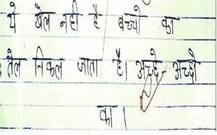 ये खेल नही है बच्चो का
तेल निकल जाता है। अच्छे अच्छो
का।